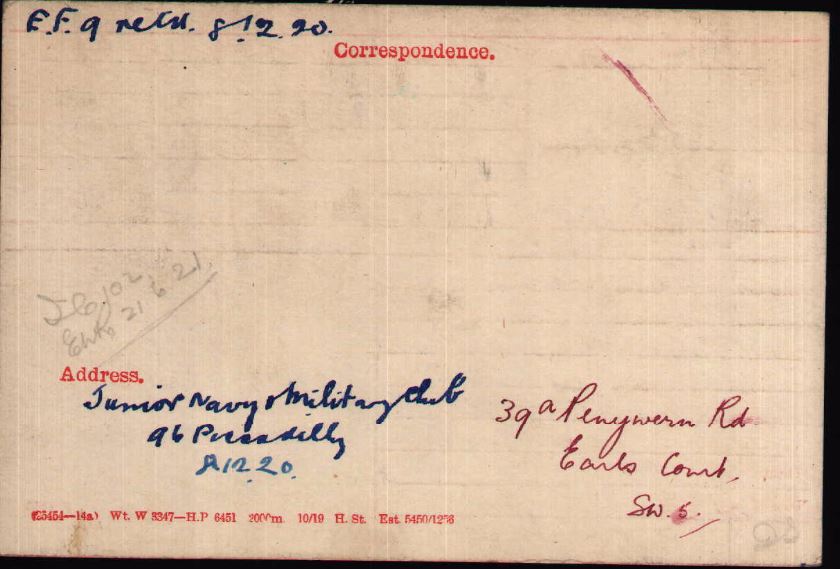 E.F. 9 retd. 8.12.20.
Correspondence.
21.6.21.
Address.
Junior Navy & Military Club
96 Piccadilly
8.12.20.
39a Penywern Rd
Earls Court,
SW.5.
(E5454—14a) Wt. W 3347—H.P 6451 2000m. 10/19 H. St. Est. 5450/1256